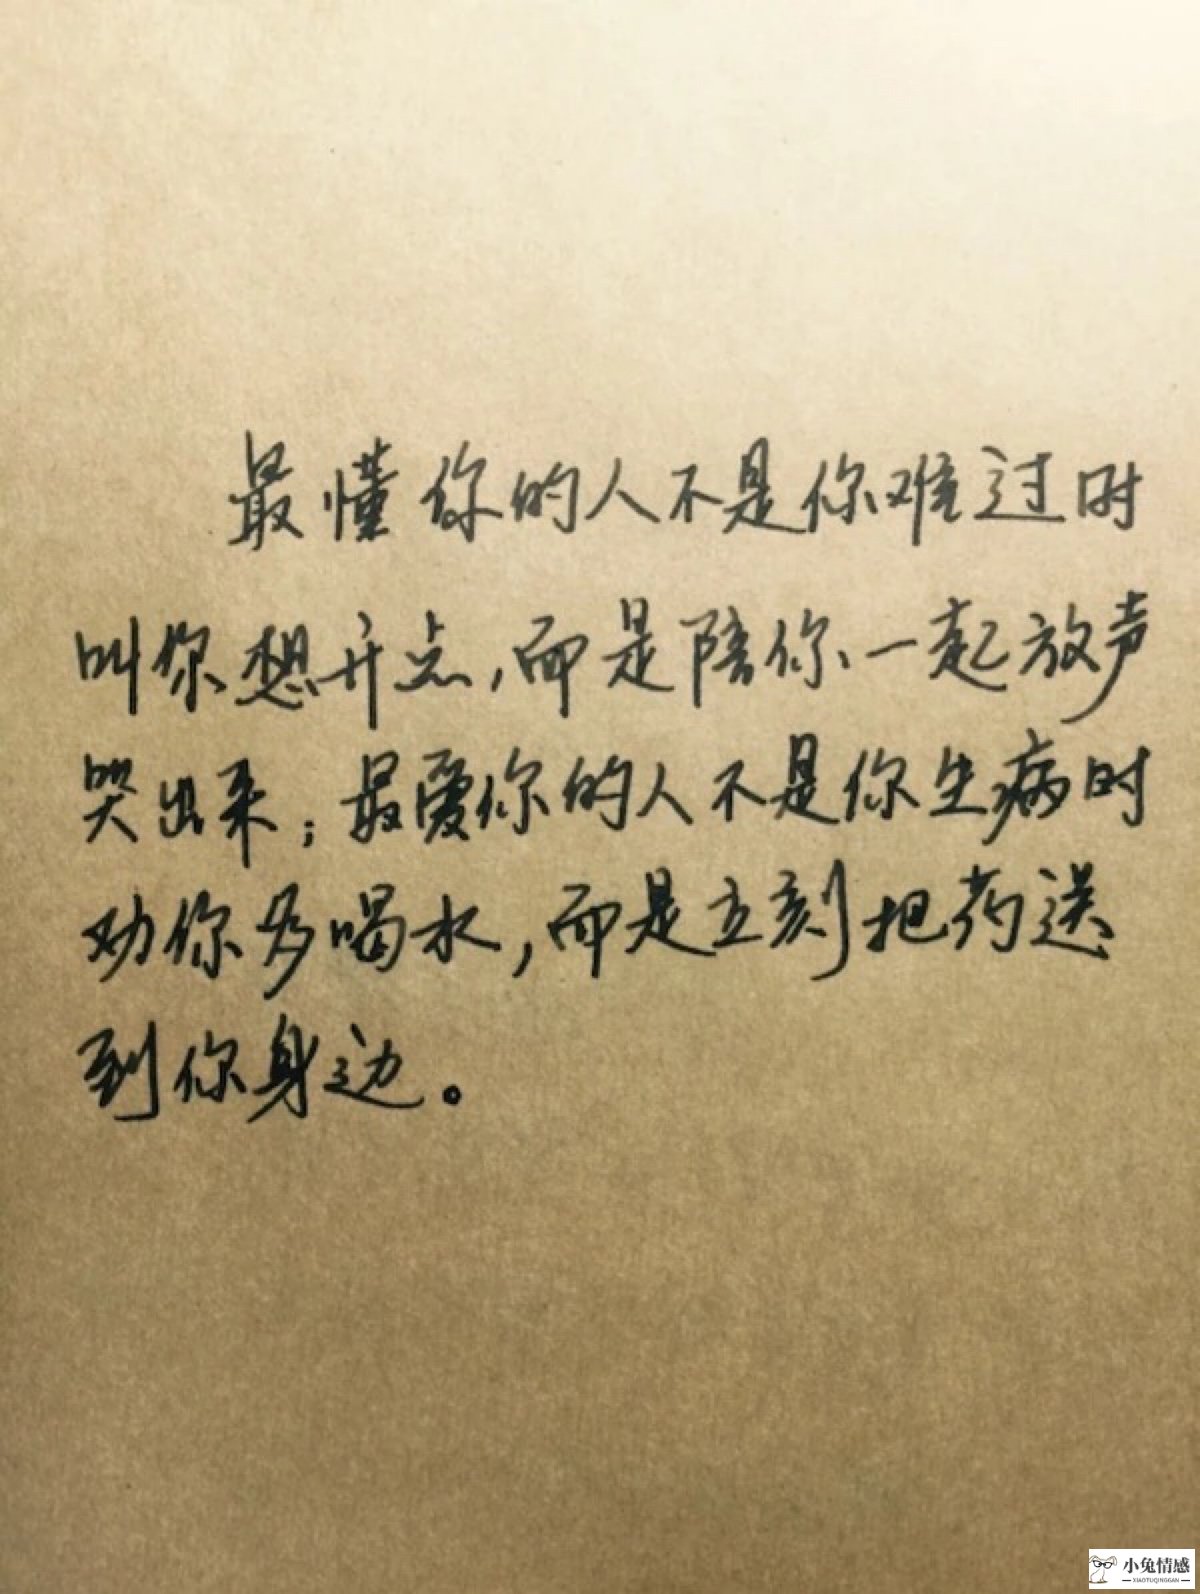 最懂你的人不是你难过时
叫你想开点,而是陪你一起放声
哭出来;最爱你的人不是你生病时
劝你多喝水,而是立刻把药送
到你身边。
小兔情感
XIAOTUQINGGAN